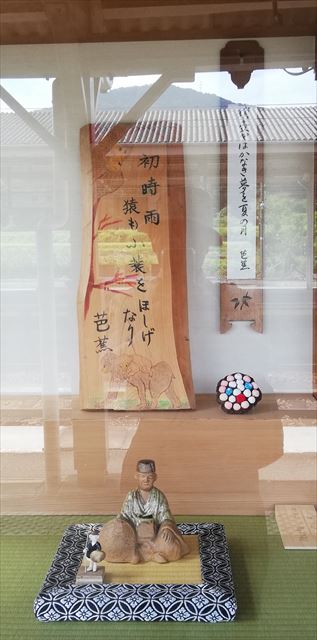 はかなき夢を夏の月 芭蕉
初時雨
猿も小蓑をほしげ
なり
芭蕉